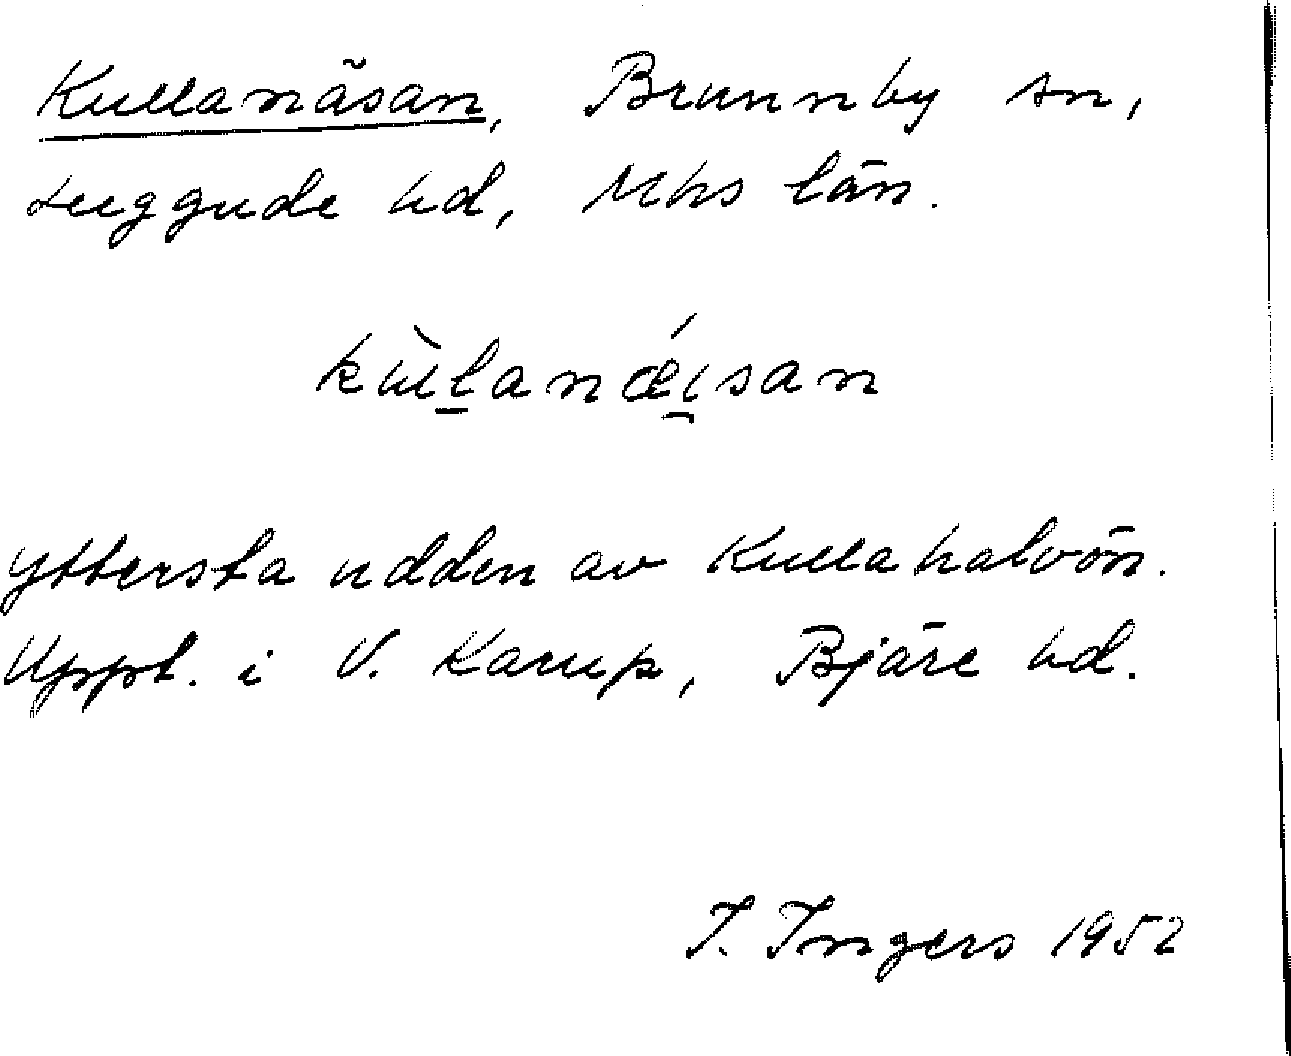 Kullanäsan, Brunnby sn,
Luggude hd, Mhs län.
kùl̲anǽi̯san
Yttersta udden av Kullahalvön.
Uppt. i V. Karup, Bjäre hd.
I. Ingers 1952